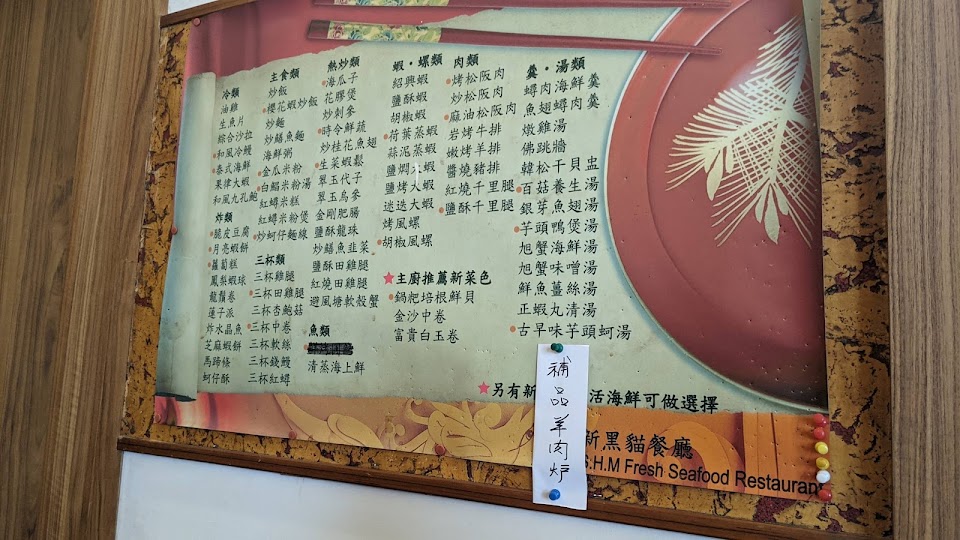 冷類
油雞
生魚片
綜合沙拉
和風冷鰻
泰式海鮮
果律大蝦
和風九孔鮑
炸類
脆皮豆腐
月亮蝦餅
蘿蔔糕
鳳梨蝦球
龍鬚卷
蓮子派
炸水晶魚
芝麻蝦餅
馬蹄條
蚵仔酥
主食類
炒飯
櫻花蝦炒飯
炒麵
炒鱔魚麵
海鮮粥
金瓜米粉
白鯧米粉湯
紅蟳米糕
紅蟳米粉煲
炒蚵仔麵線
三杯類
三杯雞腿
三杯田雞腿
三杯杏鮑菇
三杯中卷
三杯軟絲
三杯錢鰻
三杯紅蟳
熱炒類
海瓜子
花膠煲
炒刺參
時令鮮蔬
炒桂花魚翅
生菜蝦鬆
翠玉代子
翠玉烏參
金剛肥腸
鹽酥龍珠
炒鱔魚韭菜
鹽酥田雞腿
紅燒田雞腿
避風塘軟殼蟹
魚類
清蒸海上鮮
蝦・螺類
紹興蝦
鹽酥蝦
胡椒蝦
荷葉蒸蝦
蒜泥蒸蝦
鹽焗大蝦
鹽烤大蝦
迷迭大蝦
烤風螺
胡椒風螺
肉類
烤松阪肉
炒松阪肉
麻油松阪肉
岩烤牛排
嫩烤羊排
醬燒豬排
紅燒千里腿
鹽酥千里腿
★主廚推薦新菜色
鍋粑培根鮮貝
金沙中卷
富貴白玉卷
羹・湯類
蟳肉海鮮羹
魚翅蟳肉羹
燉雞湯
佛跳牆
韓松干貝盅
百菇養生湯
銀芽魚翅湯
芋頭鴨煲湯
旭蟹海鮮湯
旭蟹味噌湯
鮮魚薑絲湯
正蝦丸清湯
古早味芋頭蚵湯
★另有新 活海鮮可做選擇
補品羊肉炉
新黑貓餐廳
S.H.M Fresh Seafood Restaurant